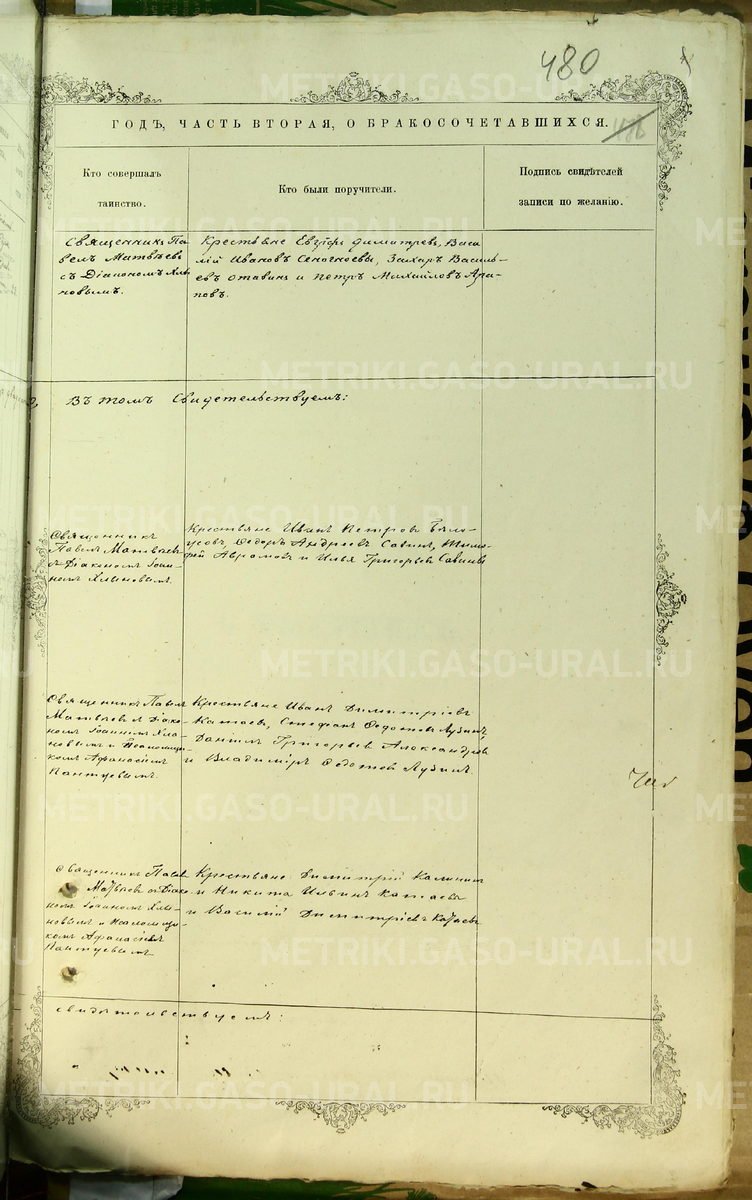 480
ГОДЪ, ЧАСТЬ ВТОРАЯ, О БРАКОСОЧЕТАВШИХСЯ.
Кто совершалъ
таинство.
Кто были поручители.
Подпись свидѣтелей
записи по желанію.
Священникъ Па-
велъ Матвѣевъ
съ Діакономъ Хли-
новымъ.
Крестьяне Димитріевъ, Васи-
лій Ивановъ Сеногноевы, Захаръ Василь-
евъ и Петръ Михайловъ
Въ томъ Свидетельствуемъ:
Священникъ
Павелъ Матвѣевъ
съ Діакономъ Іоан-
номъ Хлиновымъ.
Крестьяне Иванъ Петровъ
Ѳедоръ Андреевъ Савинъ,
Аврамовъ и Илья Григорьевъ Савины
Священникъ Павелъ
Матвѣевъ съ Діако-
номъ Іоанномъ Хли-
новымъ и Псаломщи-
комъ Аѳанасіемъ
Пантуевымъ.
Крестьяне Иванъ Димитріевъ
Катаевъ, Стефанъ Ѳедотовъ Лузинъ,
Даніилъ Григорьевъ Александровъ
и Владиміръ Ѳедотовъ Лузинъ.
Священникъ Павелъ
Матвѣевъ съ Діако-
номъ Іоанномъ Хли-
новымъ и Псаломщи-
комъ Аѳанасіемъ
Пантуевымъ
Крестьяне Димитрій Калининъ
и Никита Ильинъ Катаевы
и Василій Димитріевъ Катаевъ
свидѣтельствуемъ:
METRIKI.GASO-URAL.RU